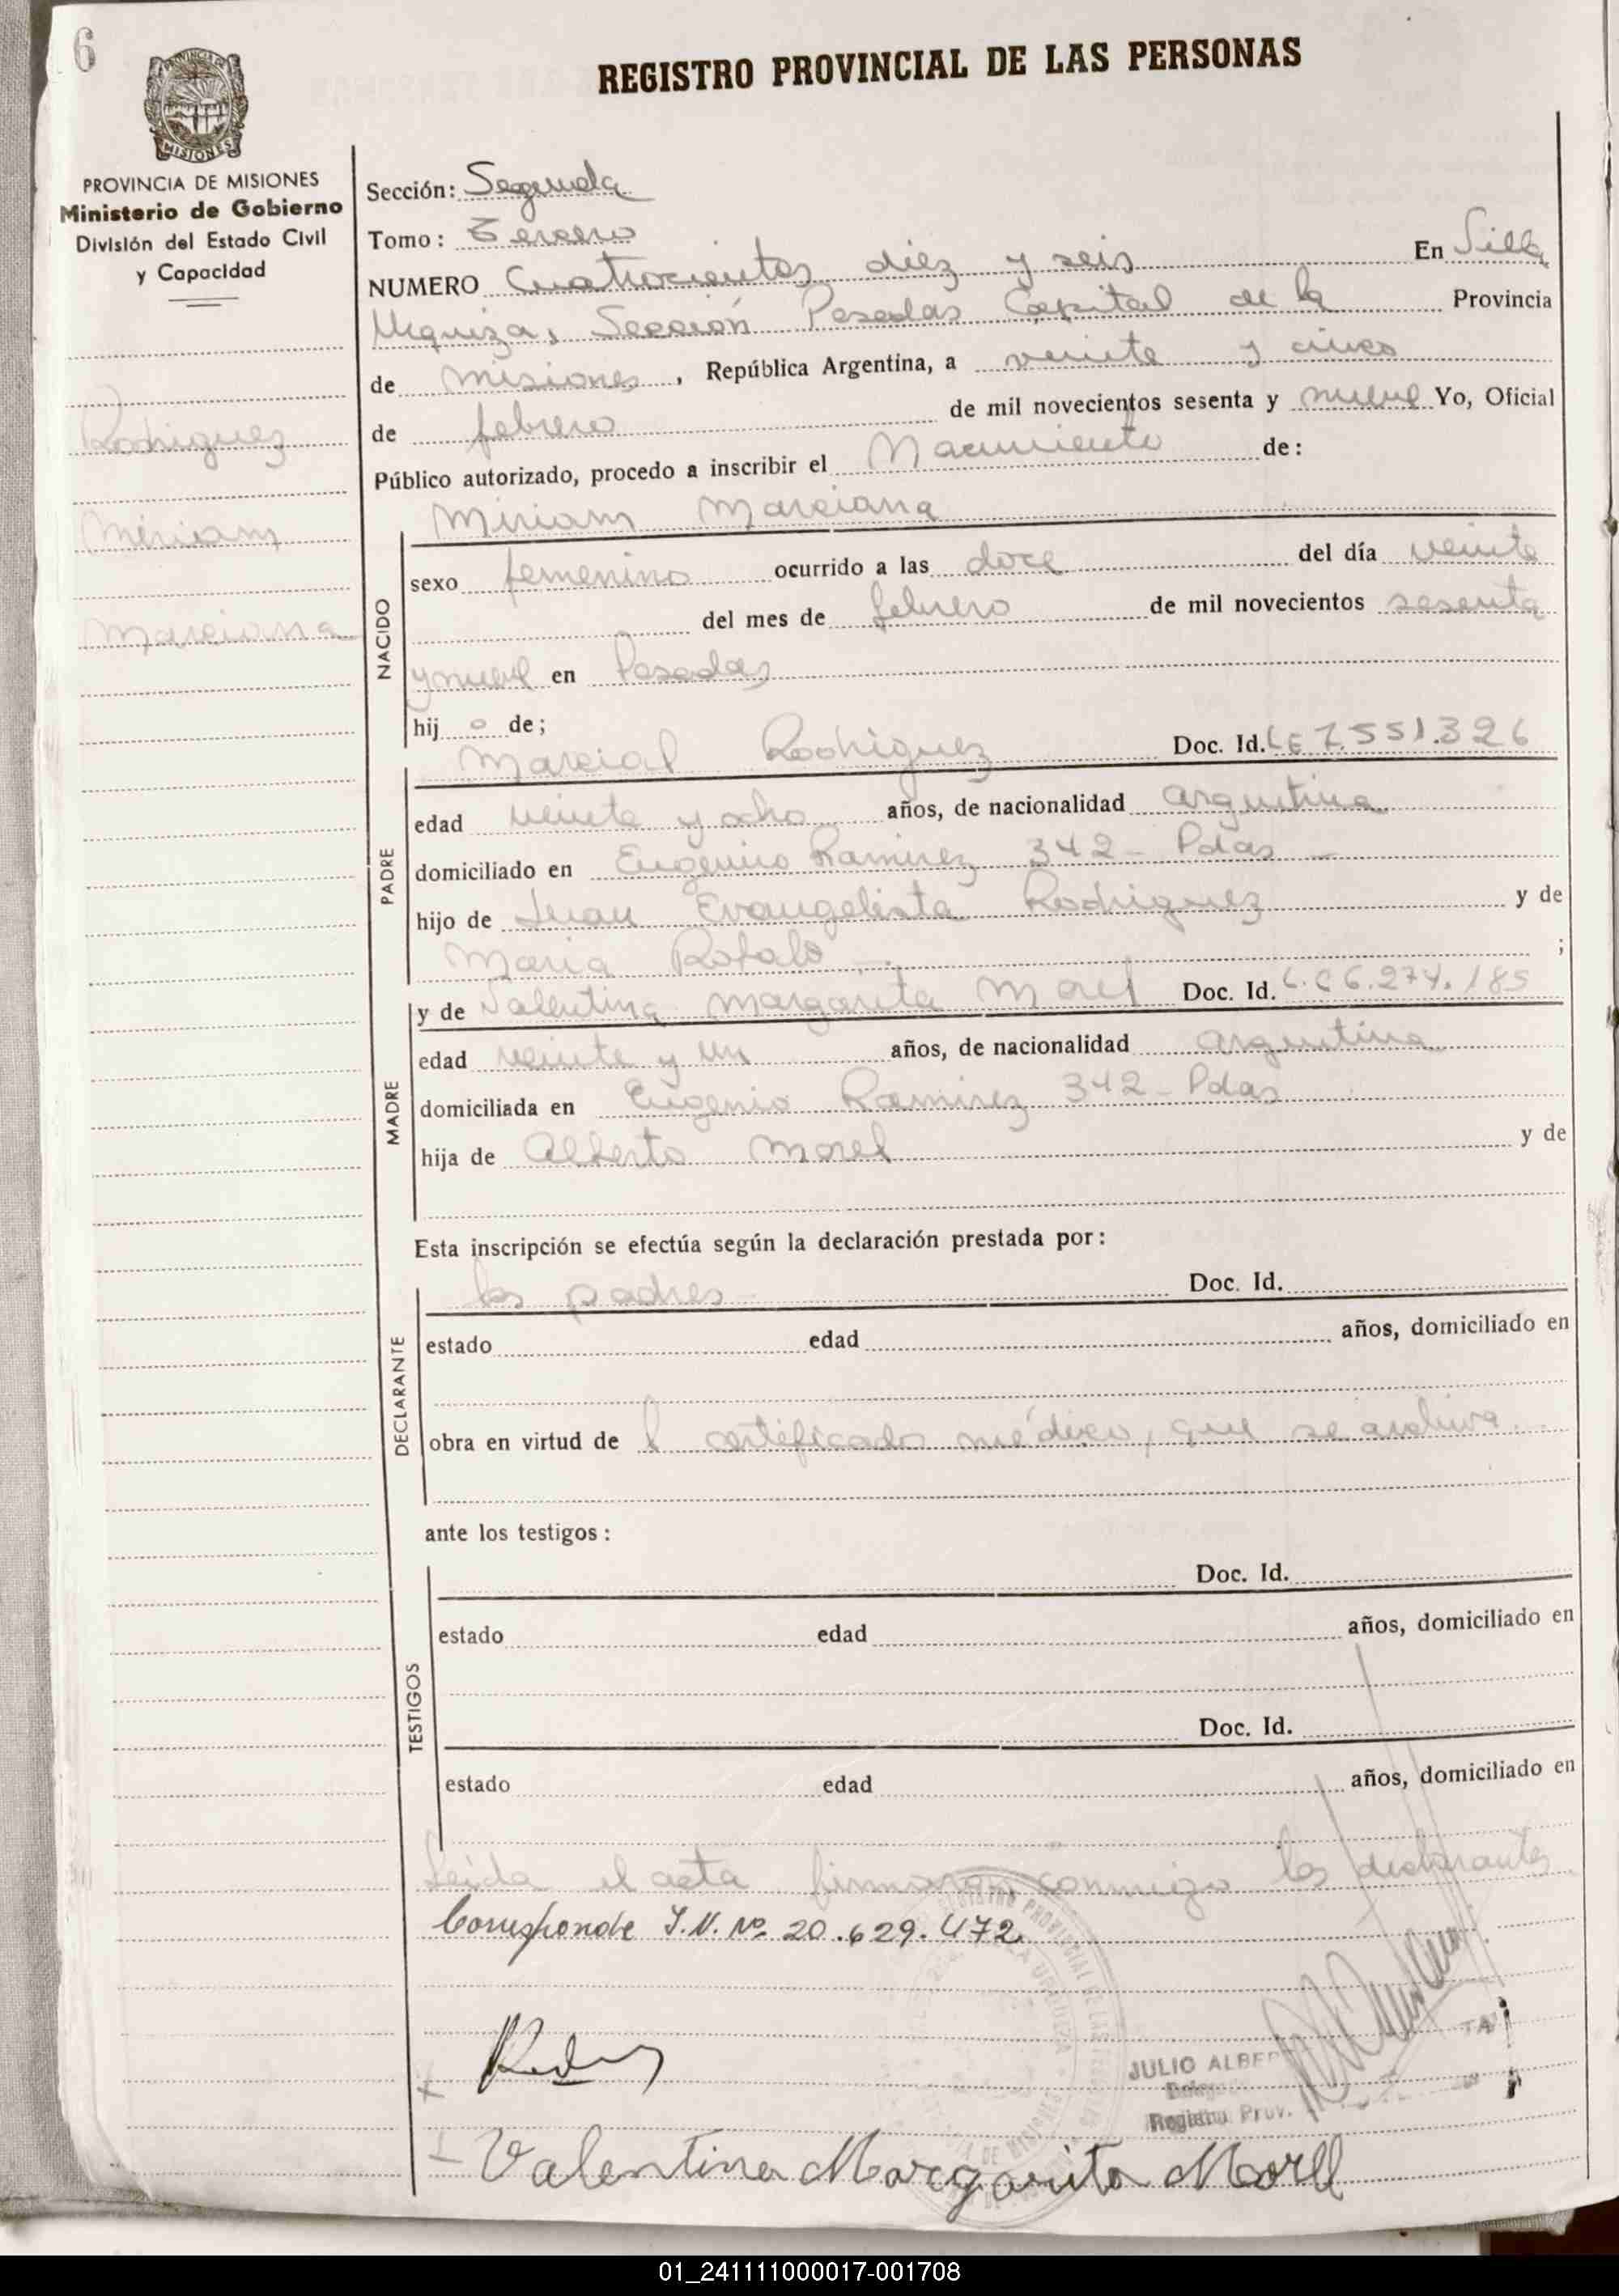 6
REGISTRO PROVINCIAL DE LAS PERSONAS
PROVINCIA DE MISIONES
Ministerio de Gobierno
División del Estado Civil
y Capacidad
Rodriguez
Miriam
Marciana
Sección: Segunda
Tomo: Tercero
NUMERO Cuatrocientos diez y seis En Villa
Urquiza, Sección Posadas Capital de la Provincia
de Misiones, República Argentina, a veinte y cinco
de febrero de mil novecientos sesenta y nueve Yo, Oficial
Público autorizado, procedo a inscribir el Nacimiento de:
Miriam Marciana
NACIDO
sexo femenino ocurrido a las doce del día veinte
del mes de febrero de mil novecientos sesenta
y nueve en Posadas
hij o de;
Marcial Rodriguez Doc. Id. LE 7.551.326
PADRE
edad veinte y ocho años, de nacionalidad argentina
domiciliado en Eugenio Ramirez 342 - Pdas -
hijo de Juan Evangelista Rodriguez y de
Maria Rotalo ;
y de Valentina Margarita Morel Doc. Id. L.C 6.274.185
MADRE
edad veinte y un años, de nacionalidad argentina
domiciliada en Eugenio Ramirez 342 - Pdas
hija de Alberto Morel y de
Esta inscripción se efectúa según la declaración prestada por:
los padres Doc. Id.
DECLARANTE
estado edad años, domiciliado en
obra en virtud de l certificado médico, que se archiva
ante los testigos:
Doc. Id.
TESTIGOS
estado edad años, domiciliado en
Doc. Id.
estado edad años, domiciliado en
Leida el acta firmaron conmigo los declarantes
Corresponde I.N. Nº 20.629.472
JULIO ALBER TA
Deleg
Registro Prov.
Valentina Margarita Morel
01_241111000017-001708